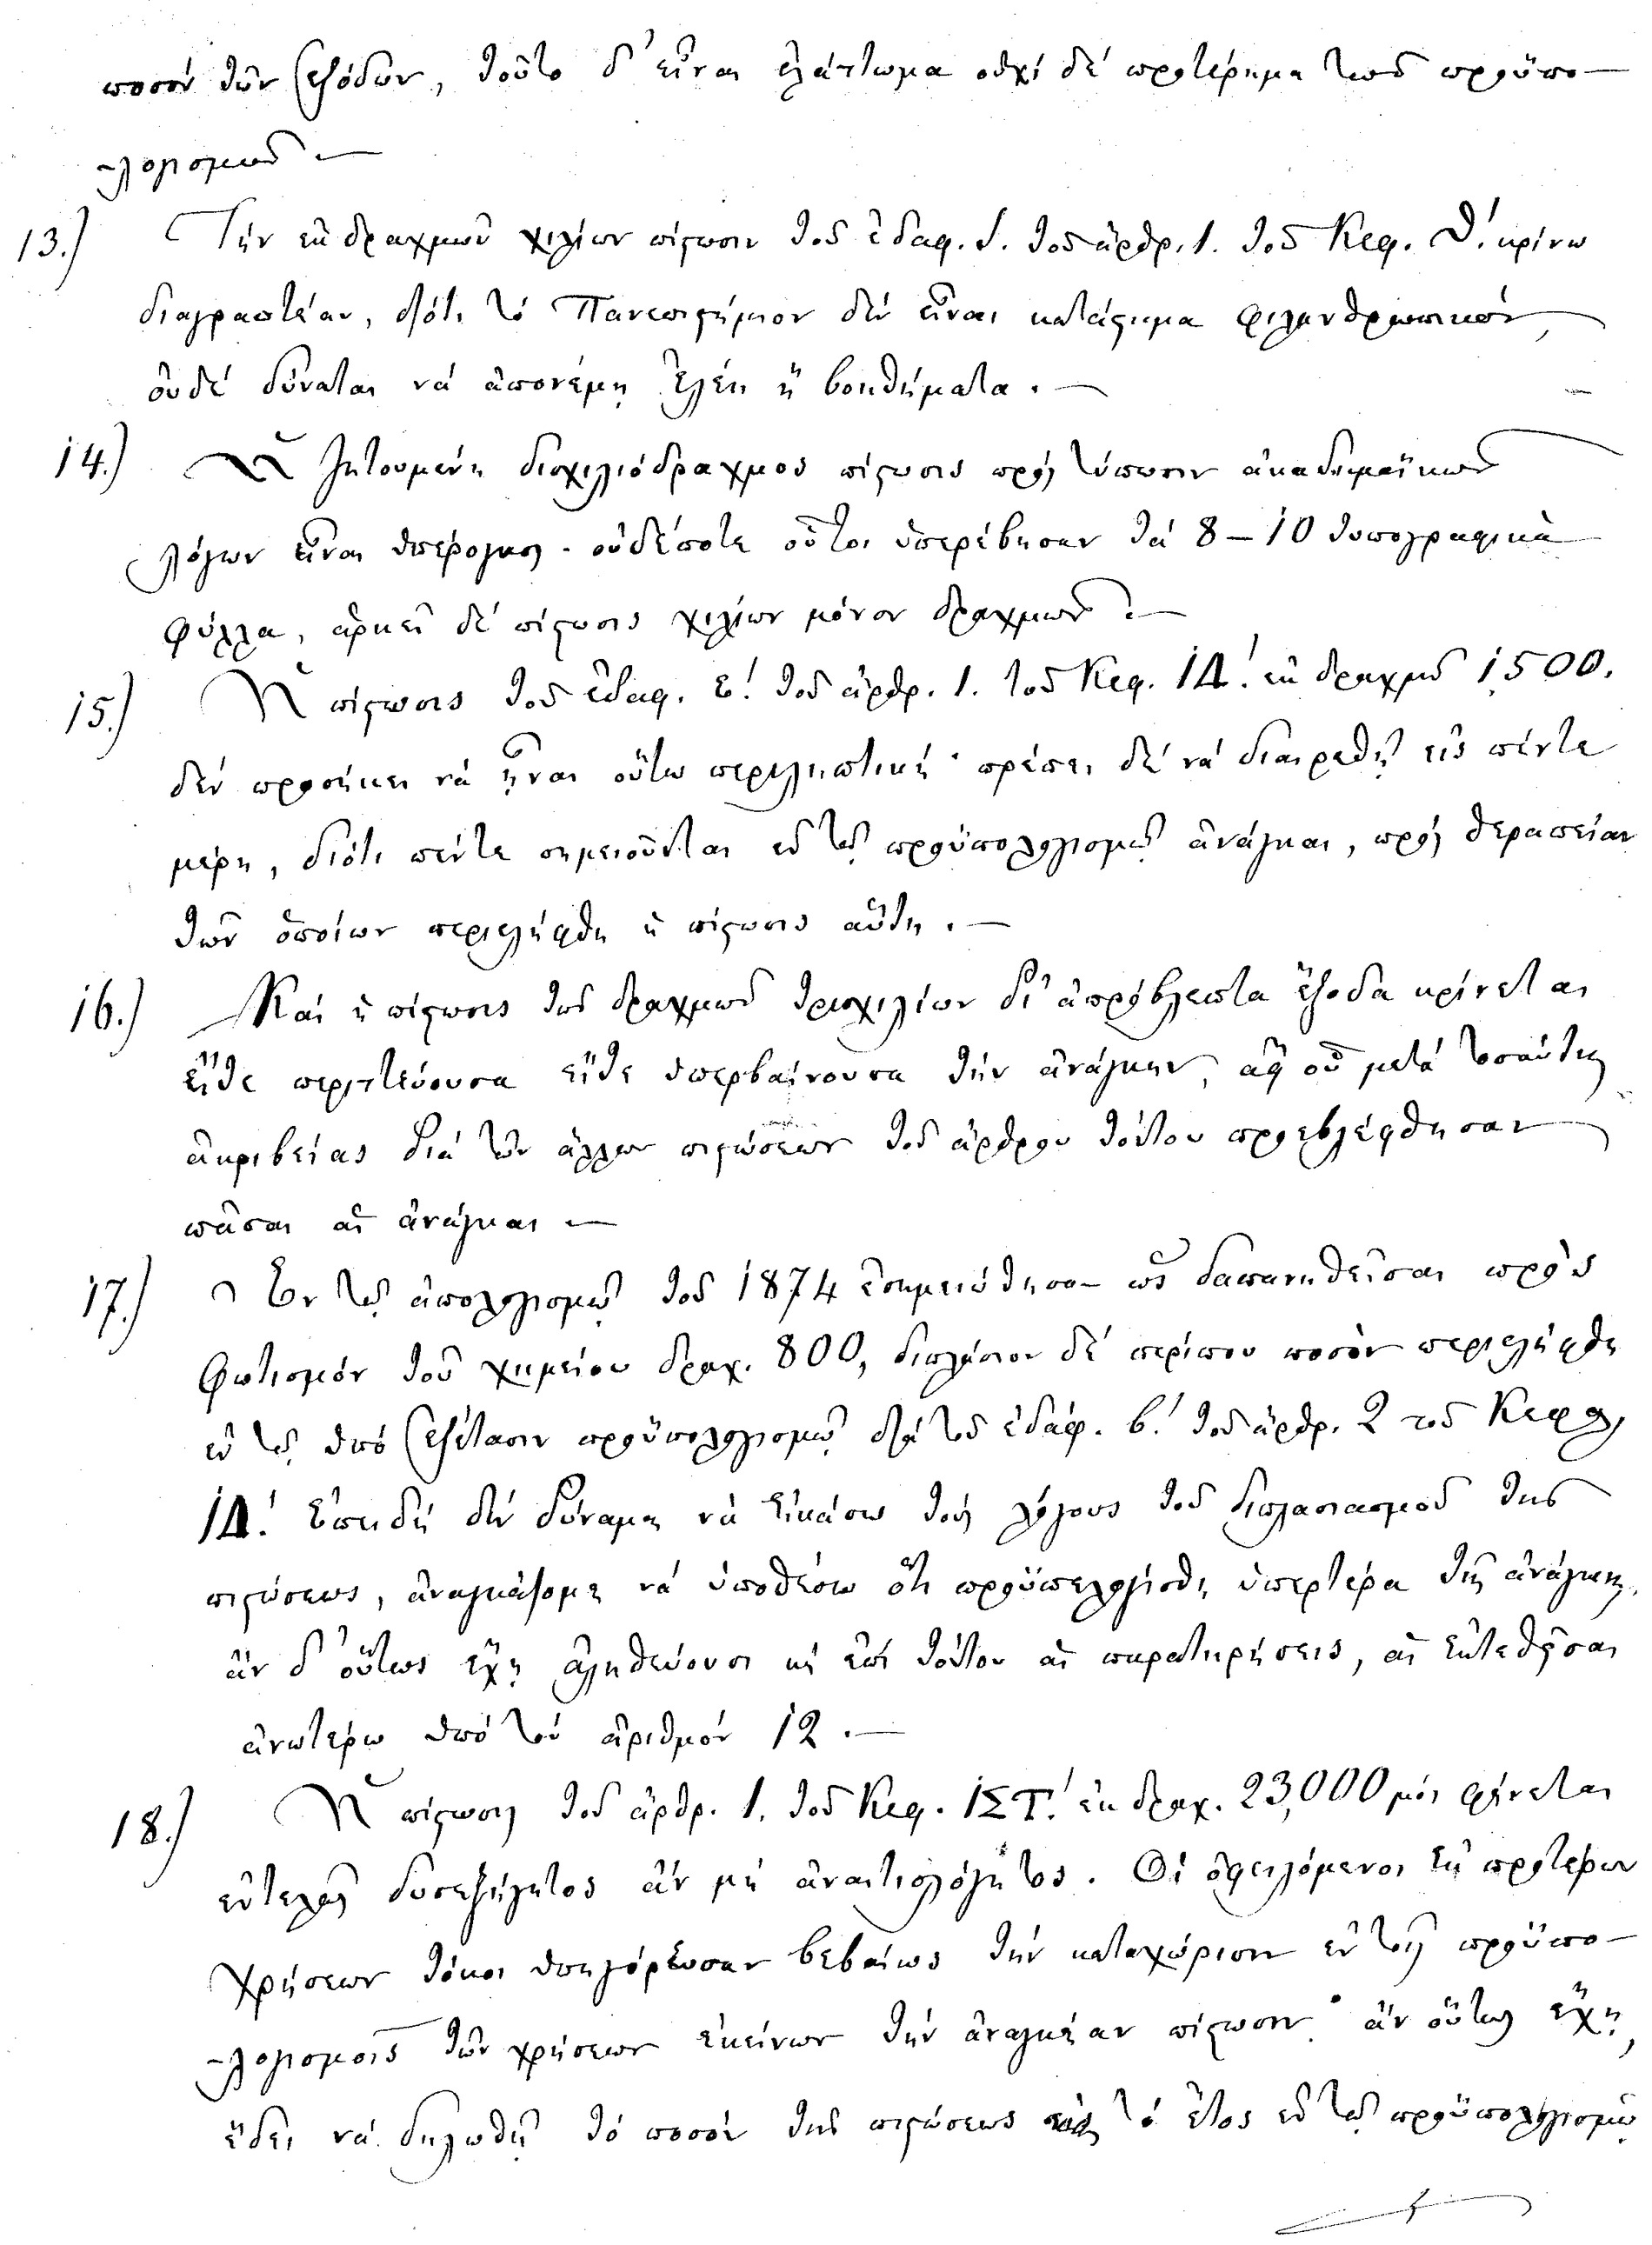 ποσόν τῶν ἐξόδων, τοῦτο δ' εἶναι ἐλάττωμα οὐχί δέ προτέρημα τοῦ προϋπο-
-λογισμοῦ.—
13.) Τήν ἐκ δραχμῶν χιλίων πίστωσιν τοῦ ἐδαφ. δ. τοῦ ἄρθρ. 1. τοῦ Κεφ. Θ'. κρίνω
διαγραπτέαν, διότι τό Πανεπιστήμιον δέν εἶναι κατάστημα φιλανθρωπικόν,
οὐδέ δύναται νά ἀπονέμῃ ἐλέη ἤ βοηθήματα.—
14.) Ἡ ζητουμένη δισχιλιόδραχμος πίστωσις πρός τύπωσιν ἀκαδημαϊκῶν
λόγων εἶναι ὑπέρογκος· οὐδέποτε οὗτοι ὑπερέβησαν τά 8–10 τυπογραφικά
φύλλα, ἀρκεῖ δέ πίστωσις χιλίων μόνον δραχμῶν.—
15.) Ἡ πίστωσις τοῦ ἐδαφ. ε'. τοῦ ἄρθρ. 1. τοῦ Κεφ. ΙΔ'. ἐκ δραχμῶν 1,500.
δέν προσήκει νά ᾖναι οὕτω περιληπτική· πρέπει δέ νά διαιρεθῇ εἰς πέντε
μέρη, διότι πέντε σημειοῦνται ἐν τῷ προϋπολογισμῷ ἀνάγκαι, πρός θεραπείαν
τῶν ὁποίων περιελήφθη ἡ πίστωσις αὕτη.—
16.) Καί ἡ πίστωσις τῶν δραχμῶν τρισχιλίων δι' ἀπρόβλεπτα ἔξοδα κρίνεται
εἴτε περιττεύουσα εἴτε ὑπερβαίνουσα τήν ἀνάγκην, ἀφ' οὗ μετά τοσαύτης
ἀκριβείας διά τῶν ἄλλων πιστώσεων τοῦ ἄρθρου τούτου προεβλέφθησαν
πᾶσαι αἱ ἀνάγκαι—
17.) Ἐν τῷ ἀπολογισμῷ τοῦ 1874 ἐσημειώθησαν ὡς δαπανηθεῖσαι πρός
φωτισμόν τοῦ χημείου δραχ. 800, διπλάσιον δέ περίπου ποσόν περιελήφθη
ἐν τῷ ὑπό ἐξέτασιν προϋπολογισμῷ διά τοῦ ἐδάφ. β'. τοῦ ἄρθρ. 2 τοῦ Κεφ.
ΙΔ'. Ἐπειδή δέν δύναμαι νά εἰκάσω τούς λόγους τοῦ διπλασιασμοῦ τῆς
πιστώσεως, ἀναγκάζομαι νά ὑποθέσω ὅτι προϋπελογίσθη ὑπερτέρα τῆς ἀνάγκης,
ἄν δ' οὕτως ἔχῃ ἀληθεύουσι καί ἐπί τούτου αἱ παρατηρήσεις, αἱ ἐκτεθεῖσαι
ἀνωτέρω ὑπό τόν ἀριθμόν 12.—
18.) Ἡ πίστωσις τοῦ ἄρθρ. 1. τοῦ Κεφ. ΙΣΤ'. ἐκ δραχ. 23,000 μοί φαίνεται
ἐντελῶς δυσεξήγητος ἄν μή ἀναιτιολόγητος. Οἱ ὀφειλόμενοι ἐκ προτέρων
χρήσεων τόκοι ὑπηγόρευσαν βεβαίως τήν καταχώρισιν ἐν τοῖς προϋπο-
-λογισμοῖς τῶν χρήσεων ἐκείνων τήν ἀναγκαίαν πίστωσιν· ἄν οὕτως ἔχῃ,
ἔδει νά δηλωθῇ τό ποσόν τῆς πιστώσεως καί τό ἔτος ἐν τῷ προϋπολογισμῷ